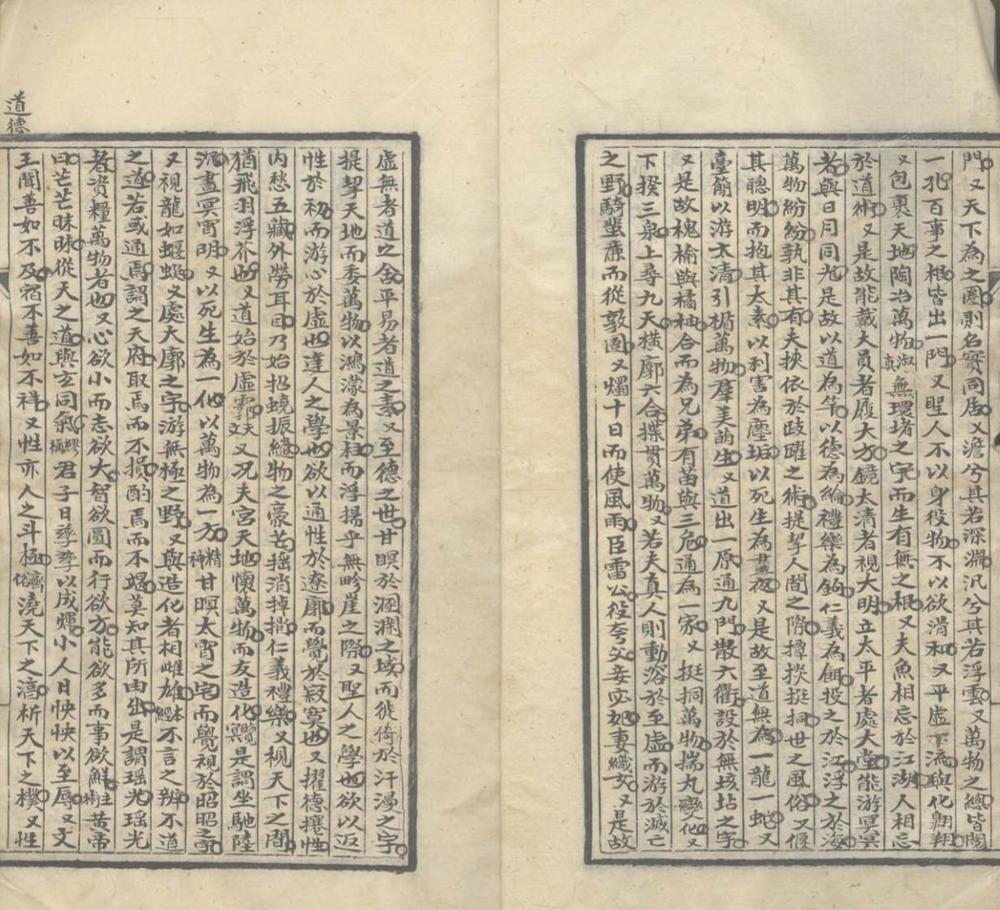 門又天下為之圈則名實同居又澹兮其若深淵汎兮其若浮雲又萬物之總皆閱
一孔百事之根皆出一門又聖人不以身役物不以欲滑和又平虛下流與化翱翔
又包裹天地陶冶萬物淑真無環堵之宇而生有無之根又夫魚相忘於江湖人相忘
於道術又是故能戴大員者履大方鏡太清者視大明立太平者處大堂能游冥冥
者與日月同光是故以道為竿以德為綸禮樂為鉤仁義為餌投之於江浮之於海
萬物紛紛孰非其有夫挾依於跂躍之術提挈人間之際撢掞挺挏世之風俗又偃
其聰明而抱其太素以利害為塵垢以死生為晝夜又是故至道無為一龍一蛇又
臺簡以游太清引楯萬物羣美萌生又道出一原通九門散六衢設於無垓坫之宇
又是故槐榆與橘柚合而為兄弟有苗與三危通為一家又挺挏萬物揣丸變化又
下揆三泉上尋九天橫廓六合揲貫萬物又若夫真人則動溶於至虛而游於滅亡
之野騎蜚廉而從敦圄又燭十日而使風雨臣雷公役夸父妾宓妃妻織女又是故
道德
虛無者道之舍平易者道之素又至德之世甘瞑於溷澖之域而徙倚於汗漫之宇
提挈天地而委萬物以鴻濛為景柱而浮揚乎無畛崖之際又聖人之學也欲以返
性於初而游心於虛也達人之學也欲以通性於遼廓而覺於寂寞也又擢德攓性
內愁五藏外勞耳目乃始招蟯振繾物之豪芒搖消掉捎仁義禮樂又視天下之間
猶飛羽浮芥也又道始於虛霩天文又況夫宮天地懷萬物而友造化覽冥是謂坐馳陸
沉晝冥宵明又以死生為一化以萬物為一方精神甘瞑太宵之宅而覺視於昭昭之宇
又視龍如蝘蜓又處大廓之宇游無極之野又與造化者相雌雄本經不言之辨不道
之道若或通焉謂之天府取焉而不損酌焉而不竭莫知其所由出是謂瑶光瑶光
者資糧萬物者也又心欲小而志欲大智欲圓而行欲方能欲多而事欲鮮主術黄帝
曰芒芒昧昧從天之道與玄同氣繆稱君子日孳孳以成煇小人日怏怏以至辱又文
王聞善如不及宿不善如不祥又性亦人之斗極齊俗澆天下之淳析天下之樸又性